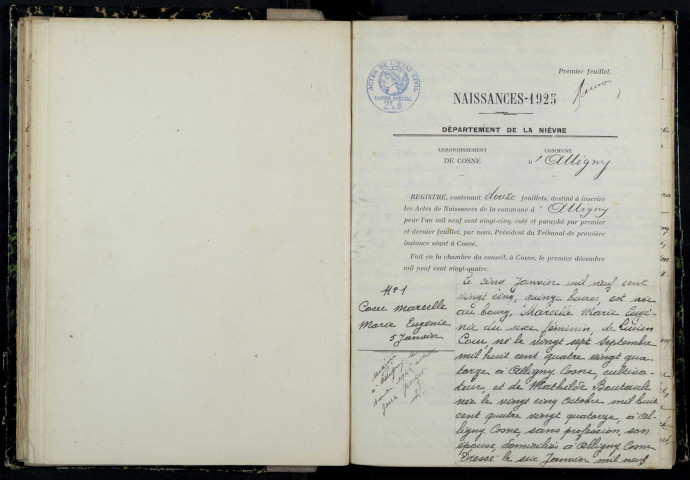 Premier feuillet.
ACTES DE L'ÉTAT CIVIL
PAPIER SPÉCIAL
NAISSANCES-1925
DÉPARTEMENT DE LA NIÈVRE
ARRONDISSEMENT
DE COSNE
COMMUNE
D'Alligny
REGISTRE, contenant douze feuillets, destiné à inscrire
les Actes de Naissances de la commune d'Alligny
pour l'an mil neuf cent vingt-cinq, coté et paraphé par premier
et dernier feuillet, par nous, Président du Tribunal de première
instance séant à Cosne.
Fait en la chambre du conseil, à Cosne, le premier décembre
mil neuf cent vingt-quatre.
N° 1
Coeu Marcelle
Marie Eugénie
5 Janvier
Le cinq Janvier mil neuf cent
vingt cinq, quinze heures, est née
au bourg, Marcelle Marie Eugé-
nie du sexe féminin, de Lucien
Coeu né le vingt sept Septembre
mil huit cent quatre vingt qua-
torze à Alligny Cosne, cultiva-
teur, et de Mathilde Boutault
née le vingt cinq Octobre mil huit
cent quatre vingt quatorze, à Al-
ligny Cosne, sans profession, son
épouse, domiciliés à Alligny Cosne
Dressé le six Janvier mil neuf